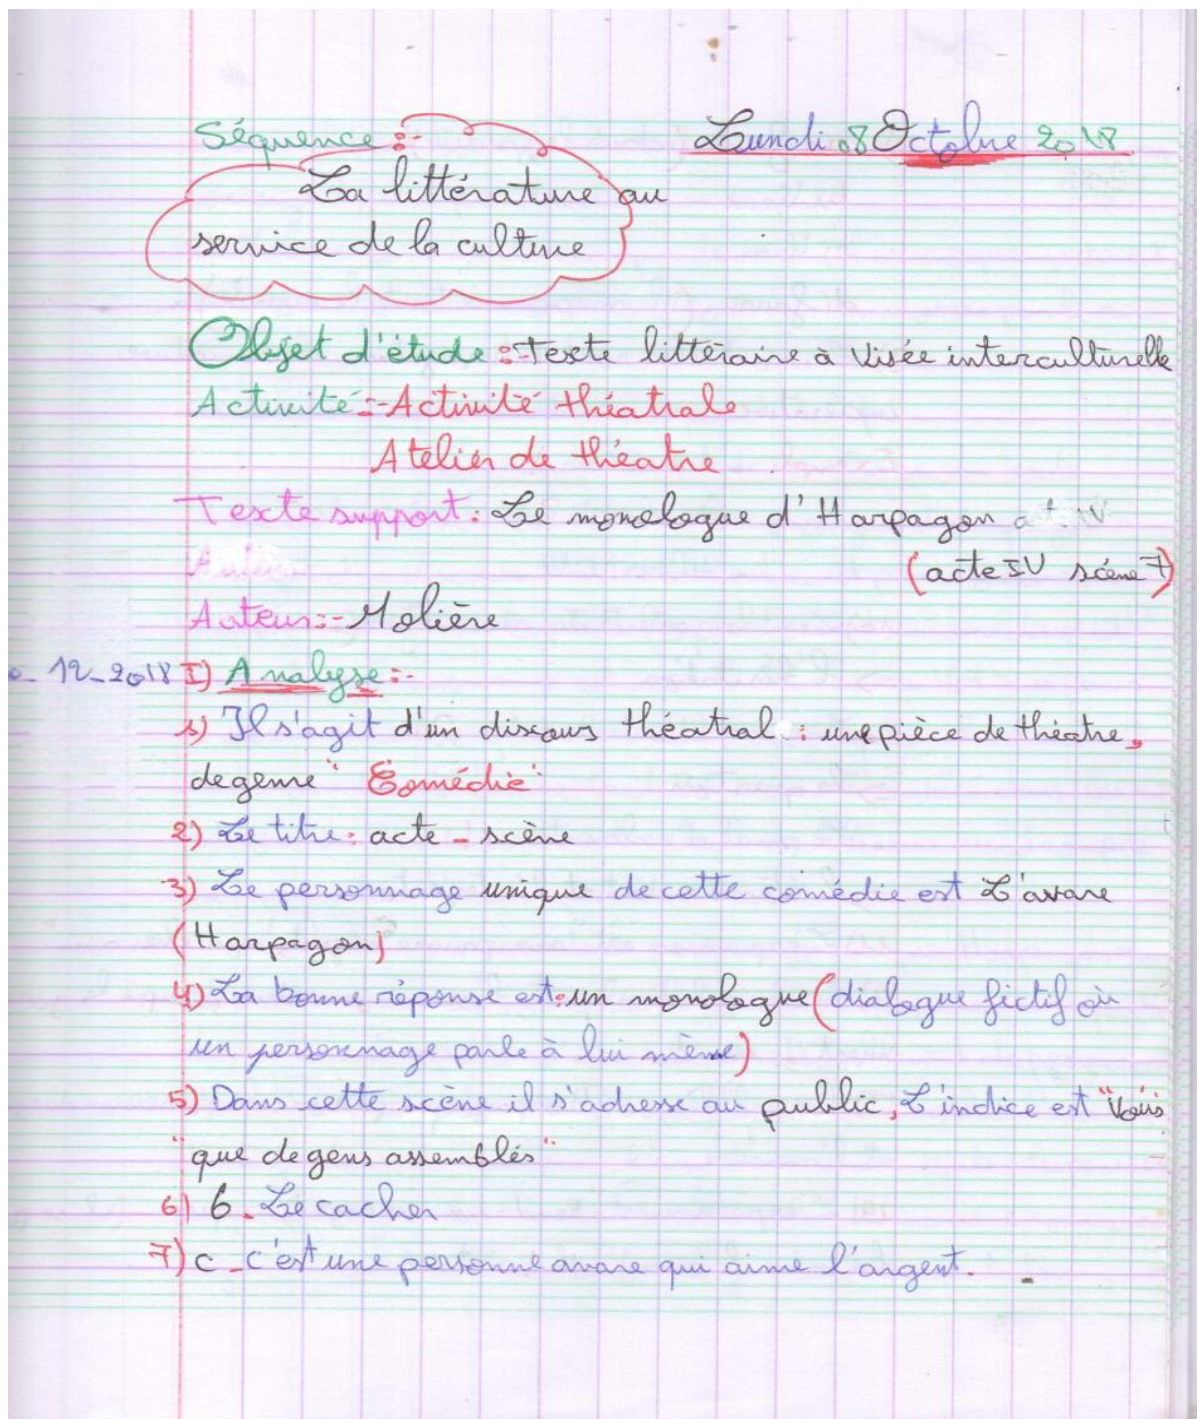 Séquence :-
Lundi 08 Octobre 2018
La littérature au
service de la culture
Objet d'étude :- Texte littéraire à visée interculturelle
Activité :- Activité théatrale
Atelier de théatre
Texte support : Le monologue d'Harpagon
(acte IV scène 7)
Auteur :- Molière
12-2018 I) Analyse :-
1) Il s'agit d'un discours théatral : une pièce de théatre,
de genre "Comédie"
2) Le titre : acte - scène
3) Le personnage unique de cette comédie est L'avare
(Harpagon)
4) La bonne réponse est : un monologue (dialogue fictif où
un personnage parle à lui même)
5) Dans cette scène il s'adresse au public, L'indice est "Vous"
"que de gens assemblés"
6) 6 - Le cacher
7) c - c'est une personne avare qui aime l'argent.